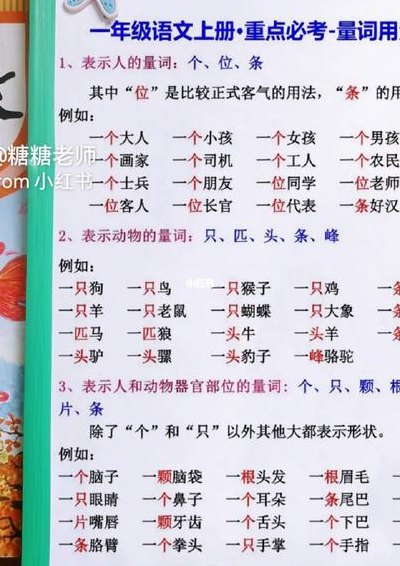 一年级语文上册·重点必考-量词用
1、表示人的量词：个、位、条
其中“位”是比较正式客气的用法，“条”的用
例如：
一个大人 一个小孩 一个女孩 一个男孩
一个画家 一个司机 一个工人 一个农民
一个士兵 一个朋友 一位同学 一位老师
一位客人 一位长官 一位代表 一条好汉
2、表示动物的量词：只、匹、头、条、峰
例如：
一只狗 一只鸟 一只猴子 一只鸡 一条
一只羊 一只老鼠 一只蝴蝶 一只大象 一条
一匹马 一匹狼 一头牛 一头羊 一条
一头驴 一头骡 一头豹子 一峰骆驼
3、表示人和动物器官部位的量词：个、只、颗、根
片、条
除了“个”和“只”以外其他大都表示形状。
例如：
一个脑子 一颗脑袋 一根头发 一根眉毛 一
一只眼睛 一个鼻子 一个耳朵 一条尾巴 一
一片嘴唇 一颗牙齿 一个舌头 一个下巴 一
一条胳臂 一个拳头 一只手掌 一个手指 一
@糖糖老师
from 小红书
小红书